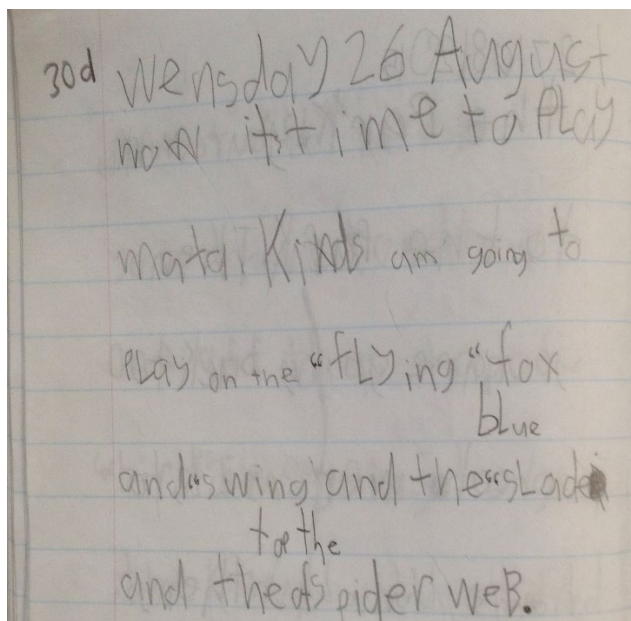 30d Wensday 26 August
now itst ime to Play
mata. Kinds am going to
PLay on the “fLying “fox
blue
and “swing and the “sLade
the
and the spider weB.